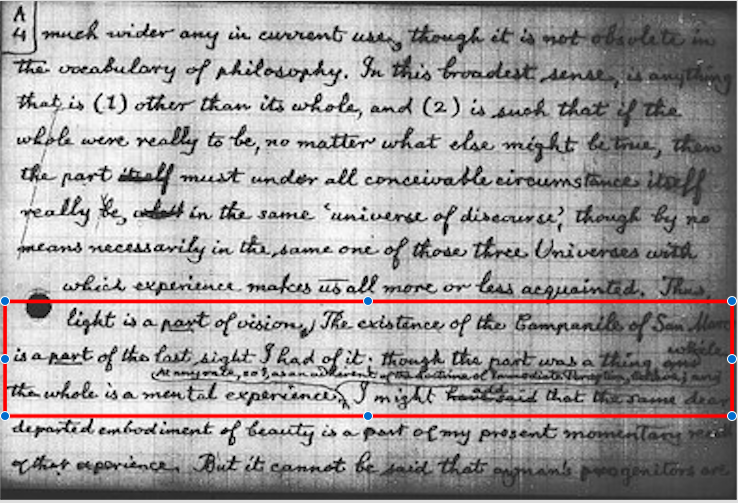 A
4
much wider any in current use, though it is not obsolete in
the vocabulary of philosophy. In this broadest sense, is anything
that is (1) other than its whole, and (2) is such that if the
whole were really to be, no matter what else might be true, then
the part itself must under all conceivable circumstances itself
really be, in the same 'universe of discourse', though by no
means necessarily in the same one of those three Universes with
which experience makes us all more or less acquainted. Thus,
light is a part of vision. The existence of the Campanile of San Marco
is a part of the last sight I had of it: though the part was a thing and
while
At any rate, so I, as an adherent of the doctrine of Immediate Perception,
the whole is a mental experience, I might have said that the same dear
add
departed embodiment of beauty is a part of my present momentary
of that experience. But it cannot be said that progenitors are